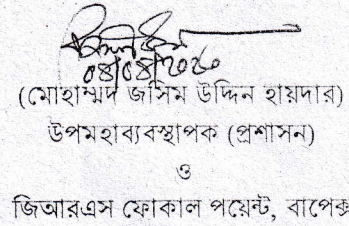 (মোহাম্মদ জসিম উদ্দিন হায়দার)
উপমহাব্যবস্থাপক (প্রশাসন)
ও
জিআরএস ফোকাল পয়েন্ট, বাপেক্স